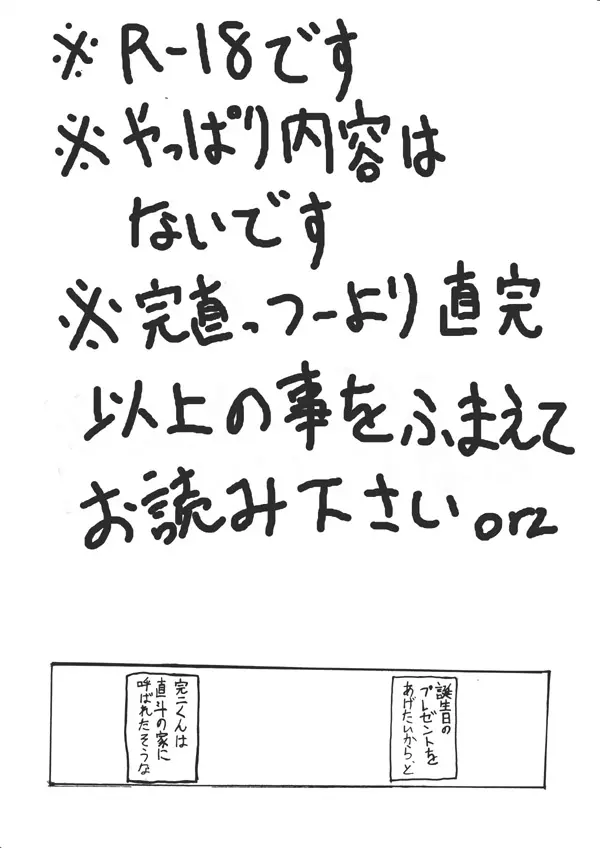 ※R-18です
※やっぱり内容は
ないです
※完直っつーより直完
以上の事をふまえて
お読み下さい。orz
誕生日の
プレゼントを
あげたいから、と
完二くんは
直斗の家に
呼ばれたそうな